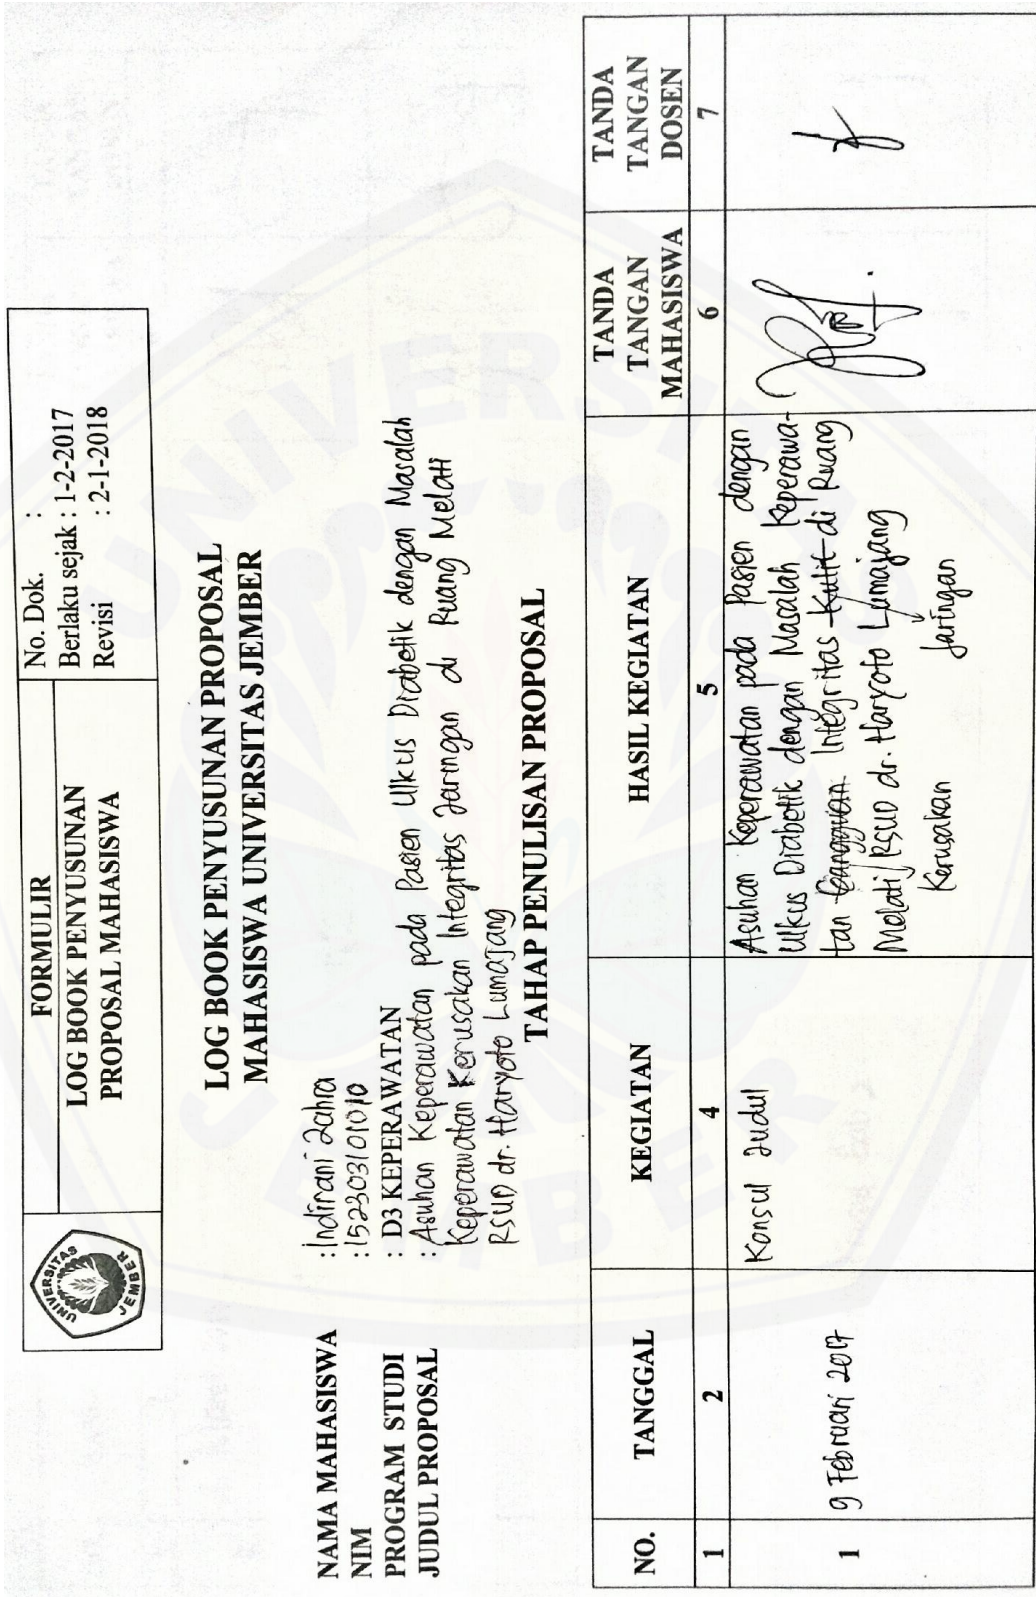 UNIVERSITAS
JEMBER
FORMULIR
LOG BOOK PENYUSUNAN
PROPOSAL MAHASISWA
No. Dok. :
Berlaku sejak : 1-2-2017
Revisi : 2-1-2018
LOG BOOK PENYUSUNAN PROPOSAL
MAHASISWA UNIVERSITAS JEMBER
NAMA MAHASISWA : Indirani Zahra
NIM : 152303101010
PROGRAM STUDI : D3 KEPERAWATAN
JUDUL PROPOSAL : Asuhan Keperawatan pada Pasien Ulkus Diabetik dengan Masalah
Keperawatan Kerusakan Integritas Jaringan di Ruang Melati
RSUD dr. Haryoto Lumajang
TAHAP PENULISAN PROPOSAL
NO. TANGGAL KEGIATAN HASIL KEGIATAN TANDA TANGAN MAHASISWA TANDA TANGAN DOSEN
1 2 4 5 6 7
1 9 Februari 2017 Konsul Judul Asuhan Keperawatan pada Pasien dengan
Ulkus Diabetik dengan Masalah Keperawa-
tan Gangguan Integritas Kulit di Ruang
Melati RSUD dr. Haryoto Lumajang
Kerusakan Jaringan